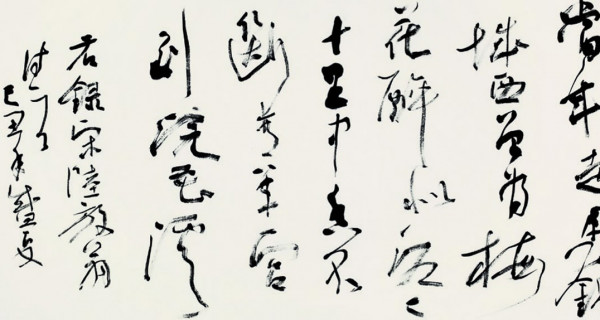 當年走馬錦
城西曾為梅
花醉似泥二
十里中香不
斷青羊宮
到浣花溪
右錄宋陸放翁
詩一首
己丑年盛夏